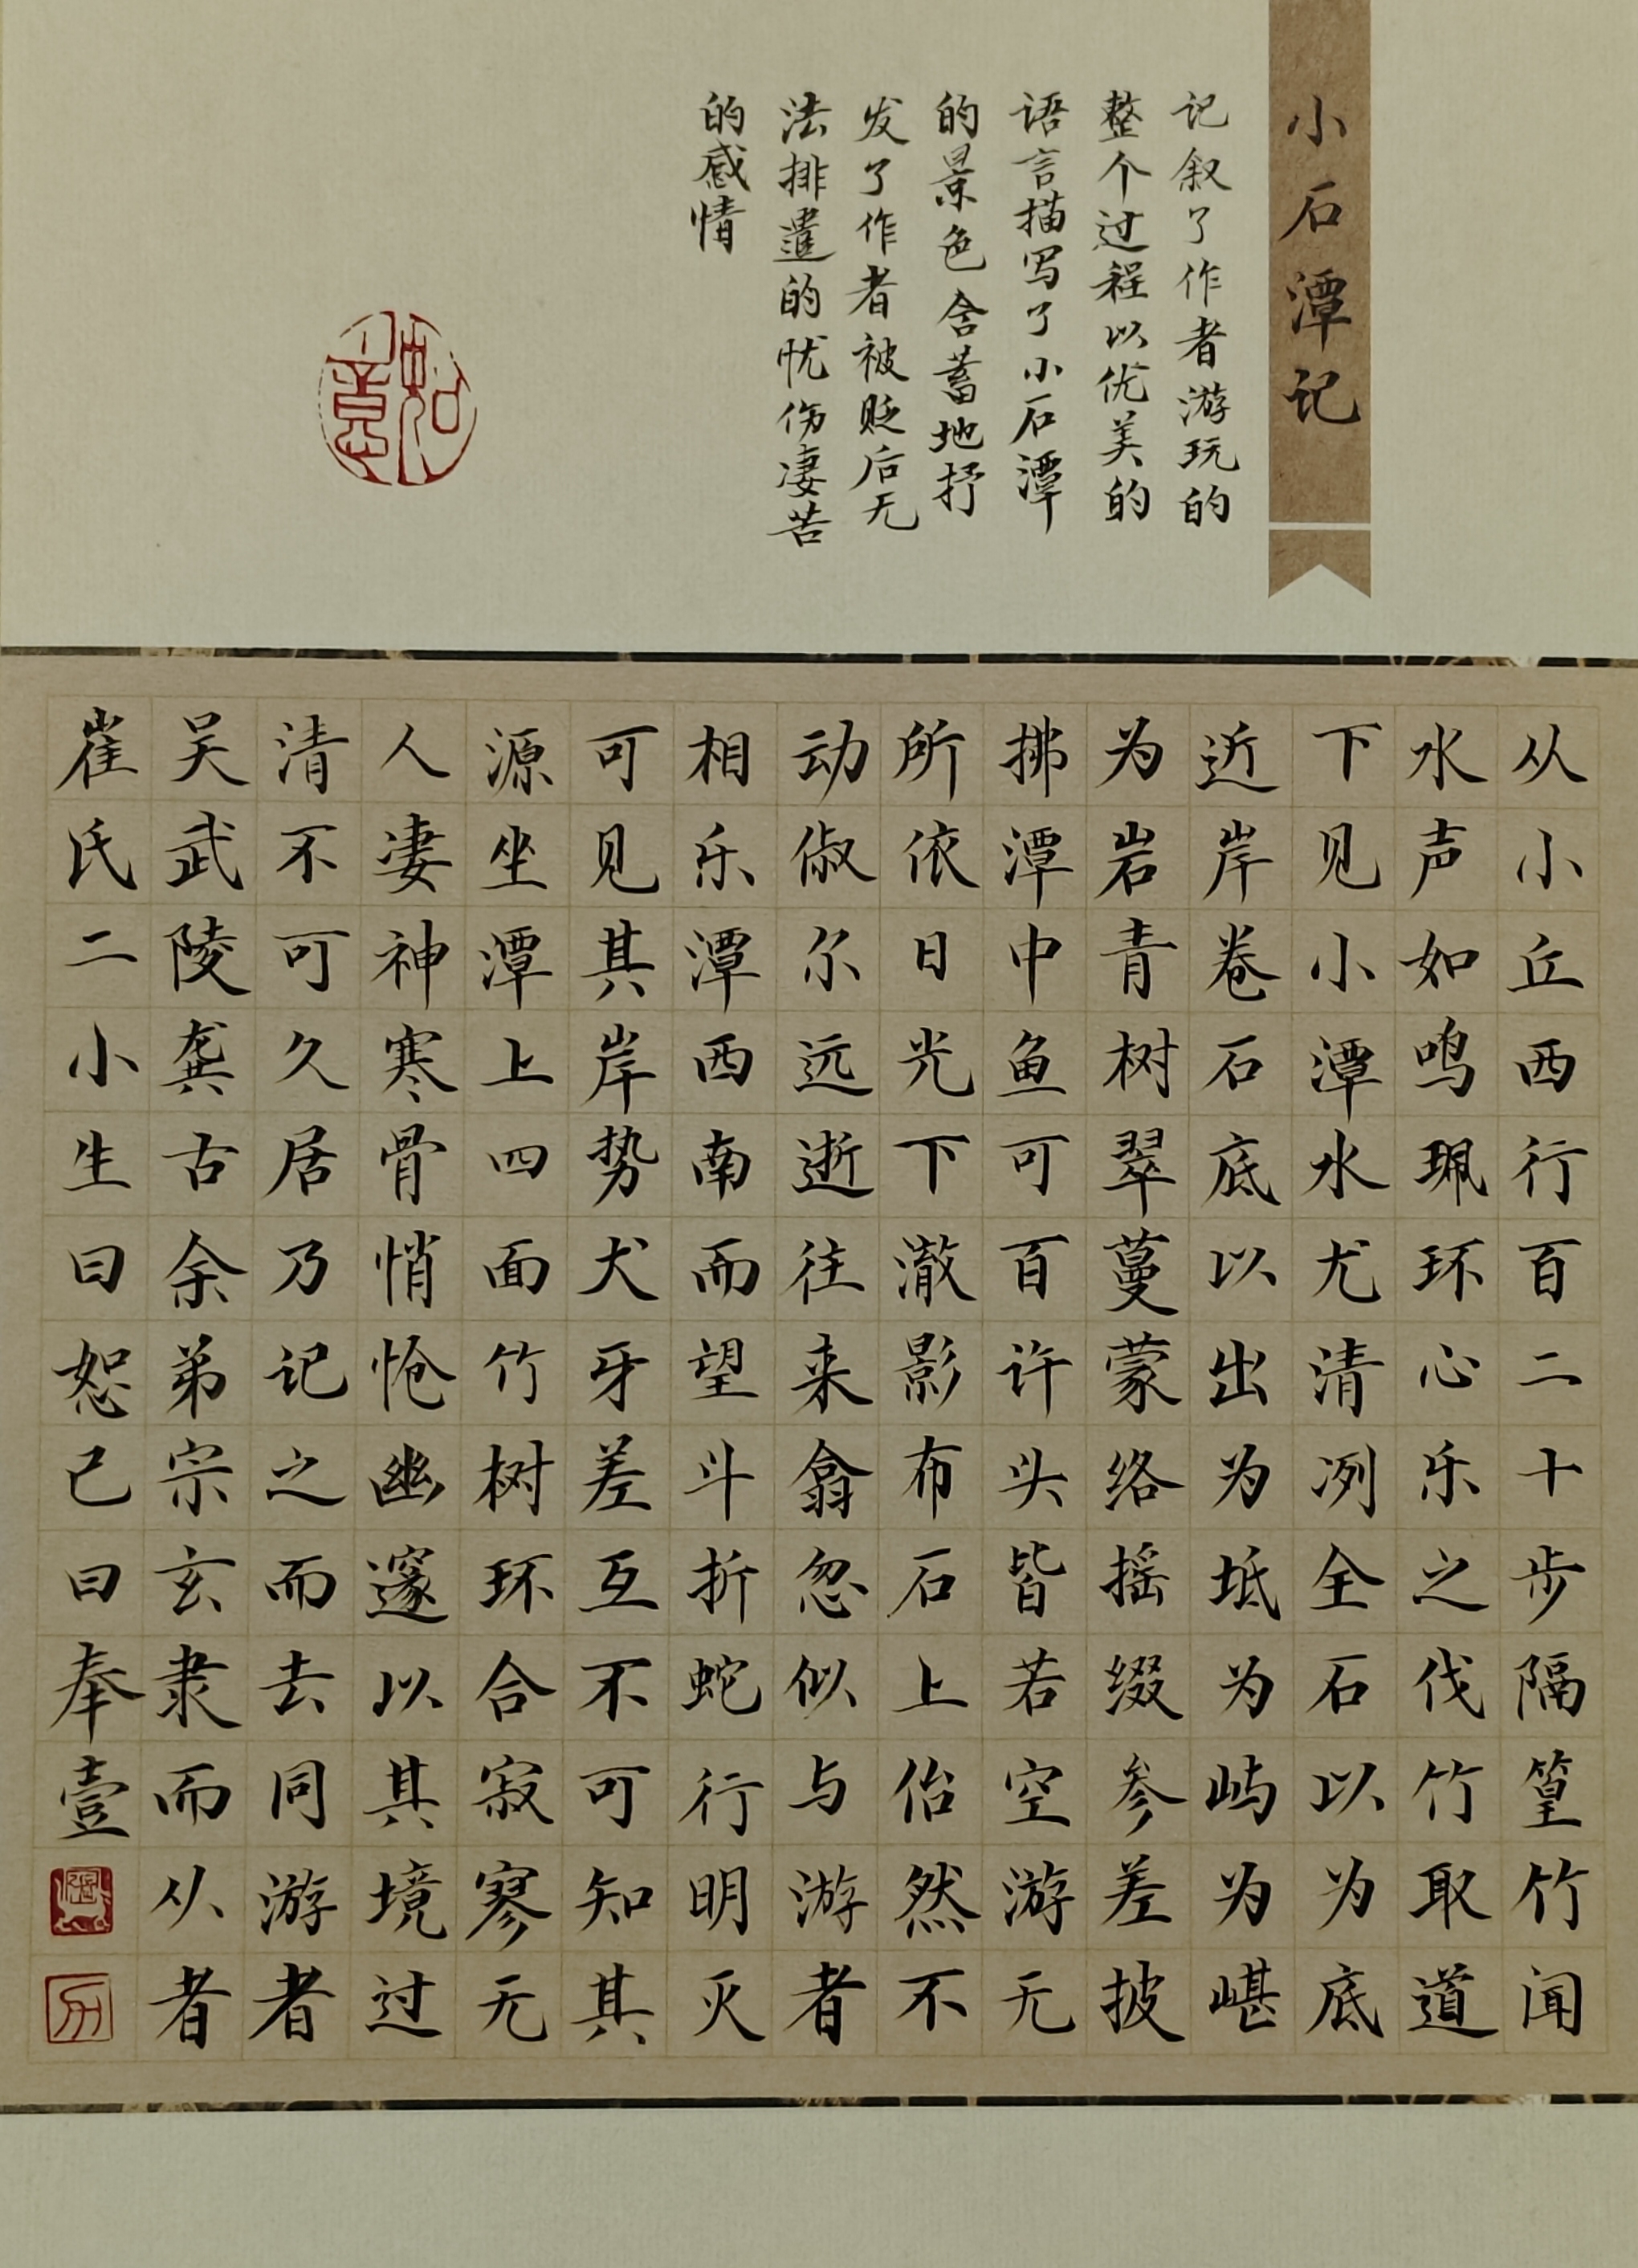 小石潭记
记叙了作者游玩的
整个过程以优美的
语言描写了小石潭
的景色含蓄地抒
发了作者被贬后无
法排遣的忧伤凄苦
的感情
从小丘西行百二十步隔篁竹闻
水声如鸣珮环心乐之伐竹取道
下见小潭水尤清冽全石以为底
近岸卷石底以出为坻为屿为嵁
为岩青树翠蔓蒙络摇缀参差披
拂潭中鱼可百许头皆若空游无
所依日光下澈影布石上佁然不
动俶尔远逝往来翕忽似与游者
相乐潭西南而望斗折蛇行明灭
可见其岸势犬牙差互不可知其
源坐潭上四面竹树环合寂寥无
人凄神寒骨悄怆幽邃以其境过
清不可久居乃记之而去同游者
吴武陵龚古余弟宗玄隶而从者
崔氏二小生曰恕己曰奉壹